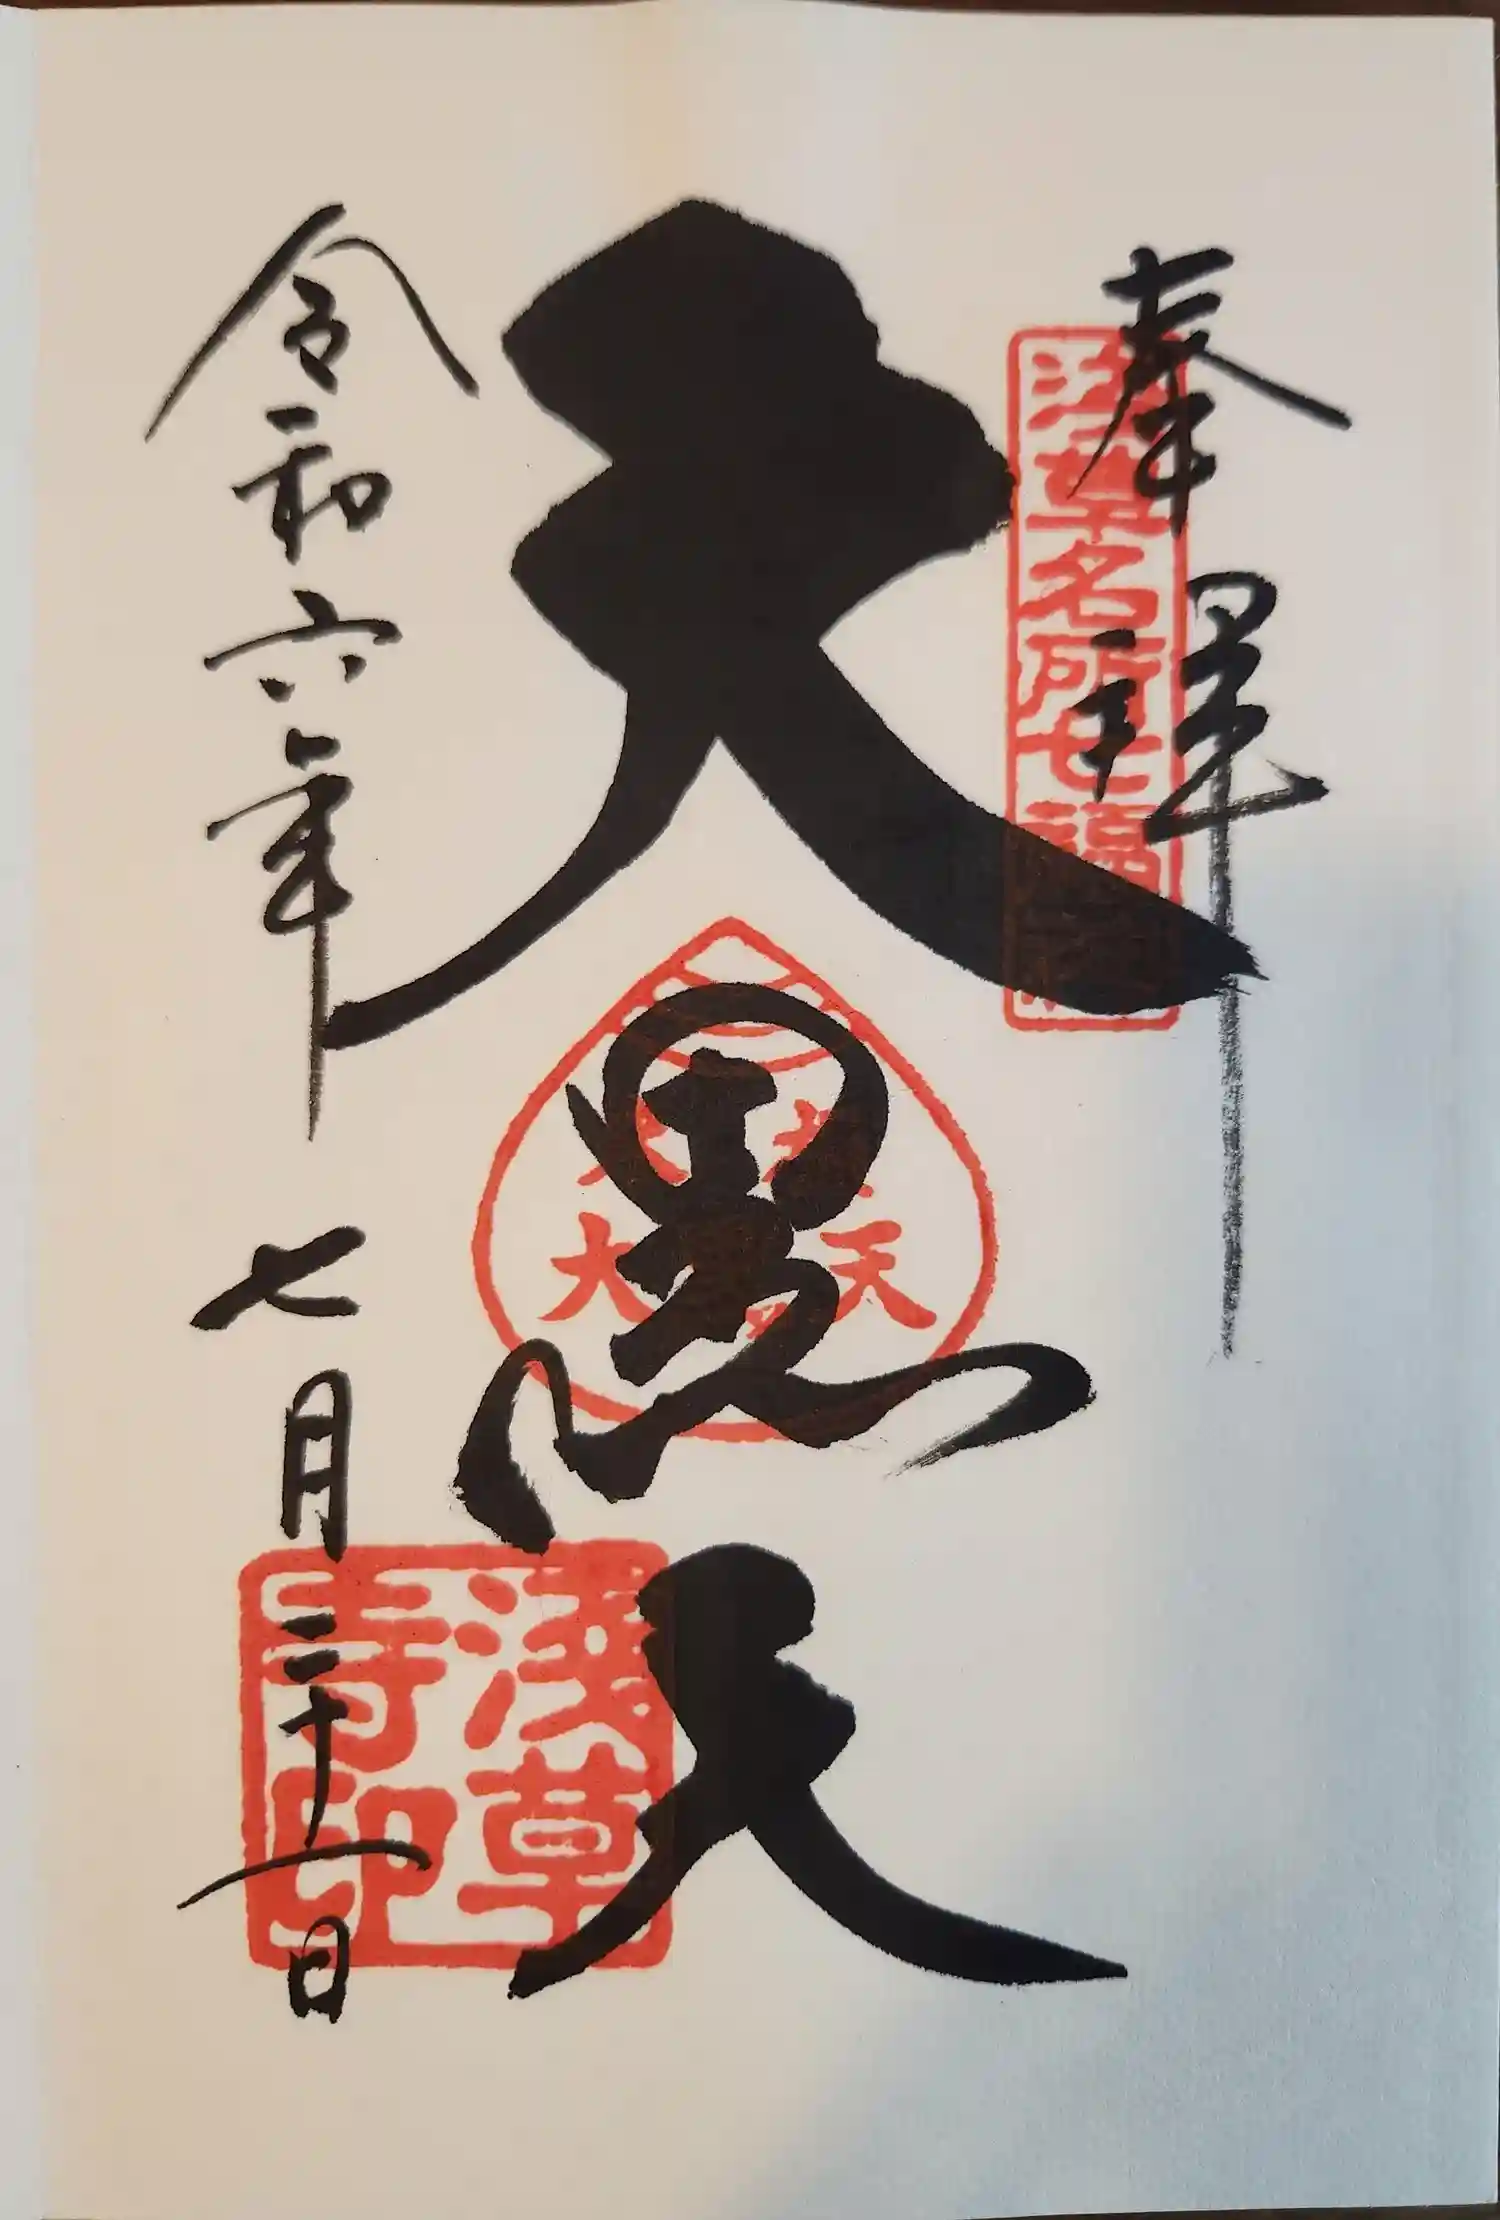 奉拝
浅草名所七福
大黒天
大
天
令和六年七月三十一日
淺草寺印